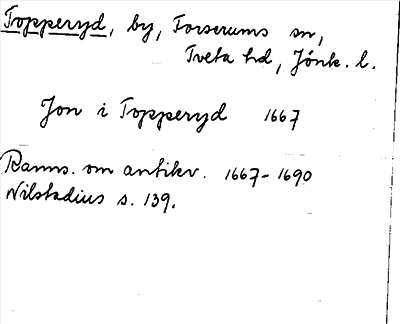 Topperyd, by, Forserums sn,
Tveta hd, Jönk. l.
Jon i Topperyd 1667
Ranns. om antikv. 1667-1690
Nilstadius s. 139.